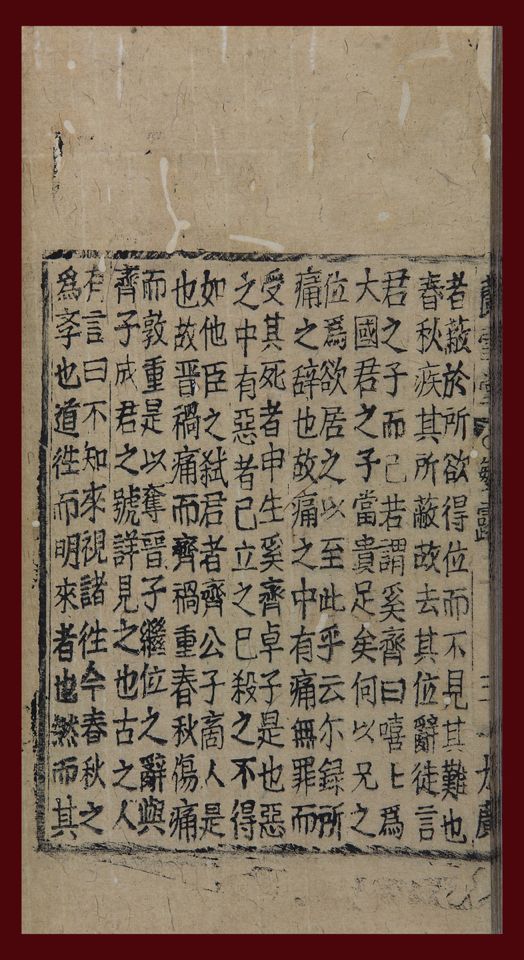 者蔽於所欲得位而不見其難也
春秋疾其所蔽故去其位辭徒言
君之子而已若謂奚齊曰嘻匕爲
大國君之子當貴足矣何以兄之
位爲欲居之以至此乎云尔錄所
痛之辞也故痛之中有痛無罪而
受其死者申生奚齊卓子是也惡
之中有惡者已立之已殺之不得
如他臣之弑君者齊公子商人是
也故晉禍痛而齊禍重春秋傷痛
而敦重是以奪晉子繼位之辭與
齊子成君之號詳見之也古之人
有言曰不知來視諸徃今春秋之
爲斈也道徃而明來者也然而其